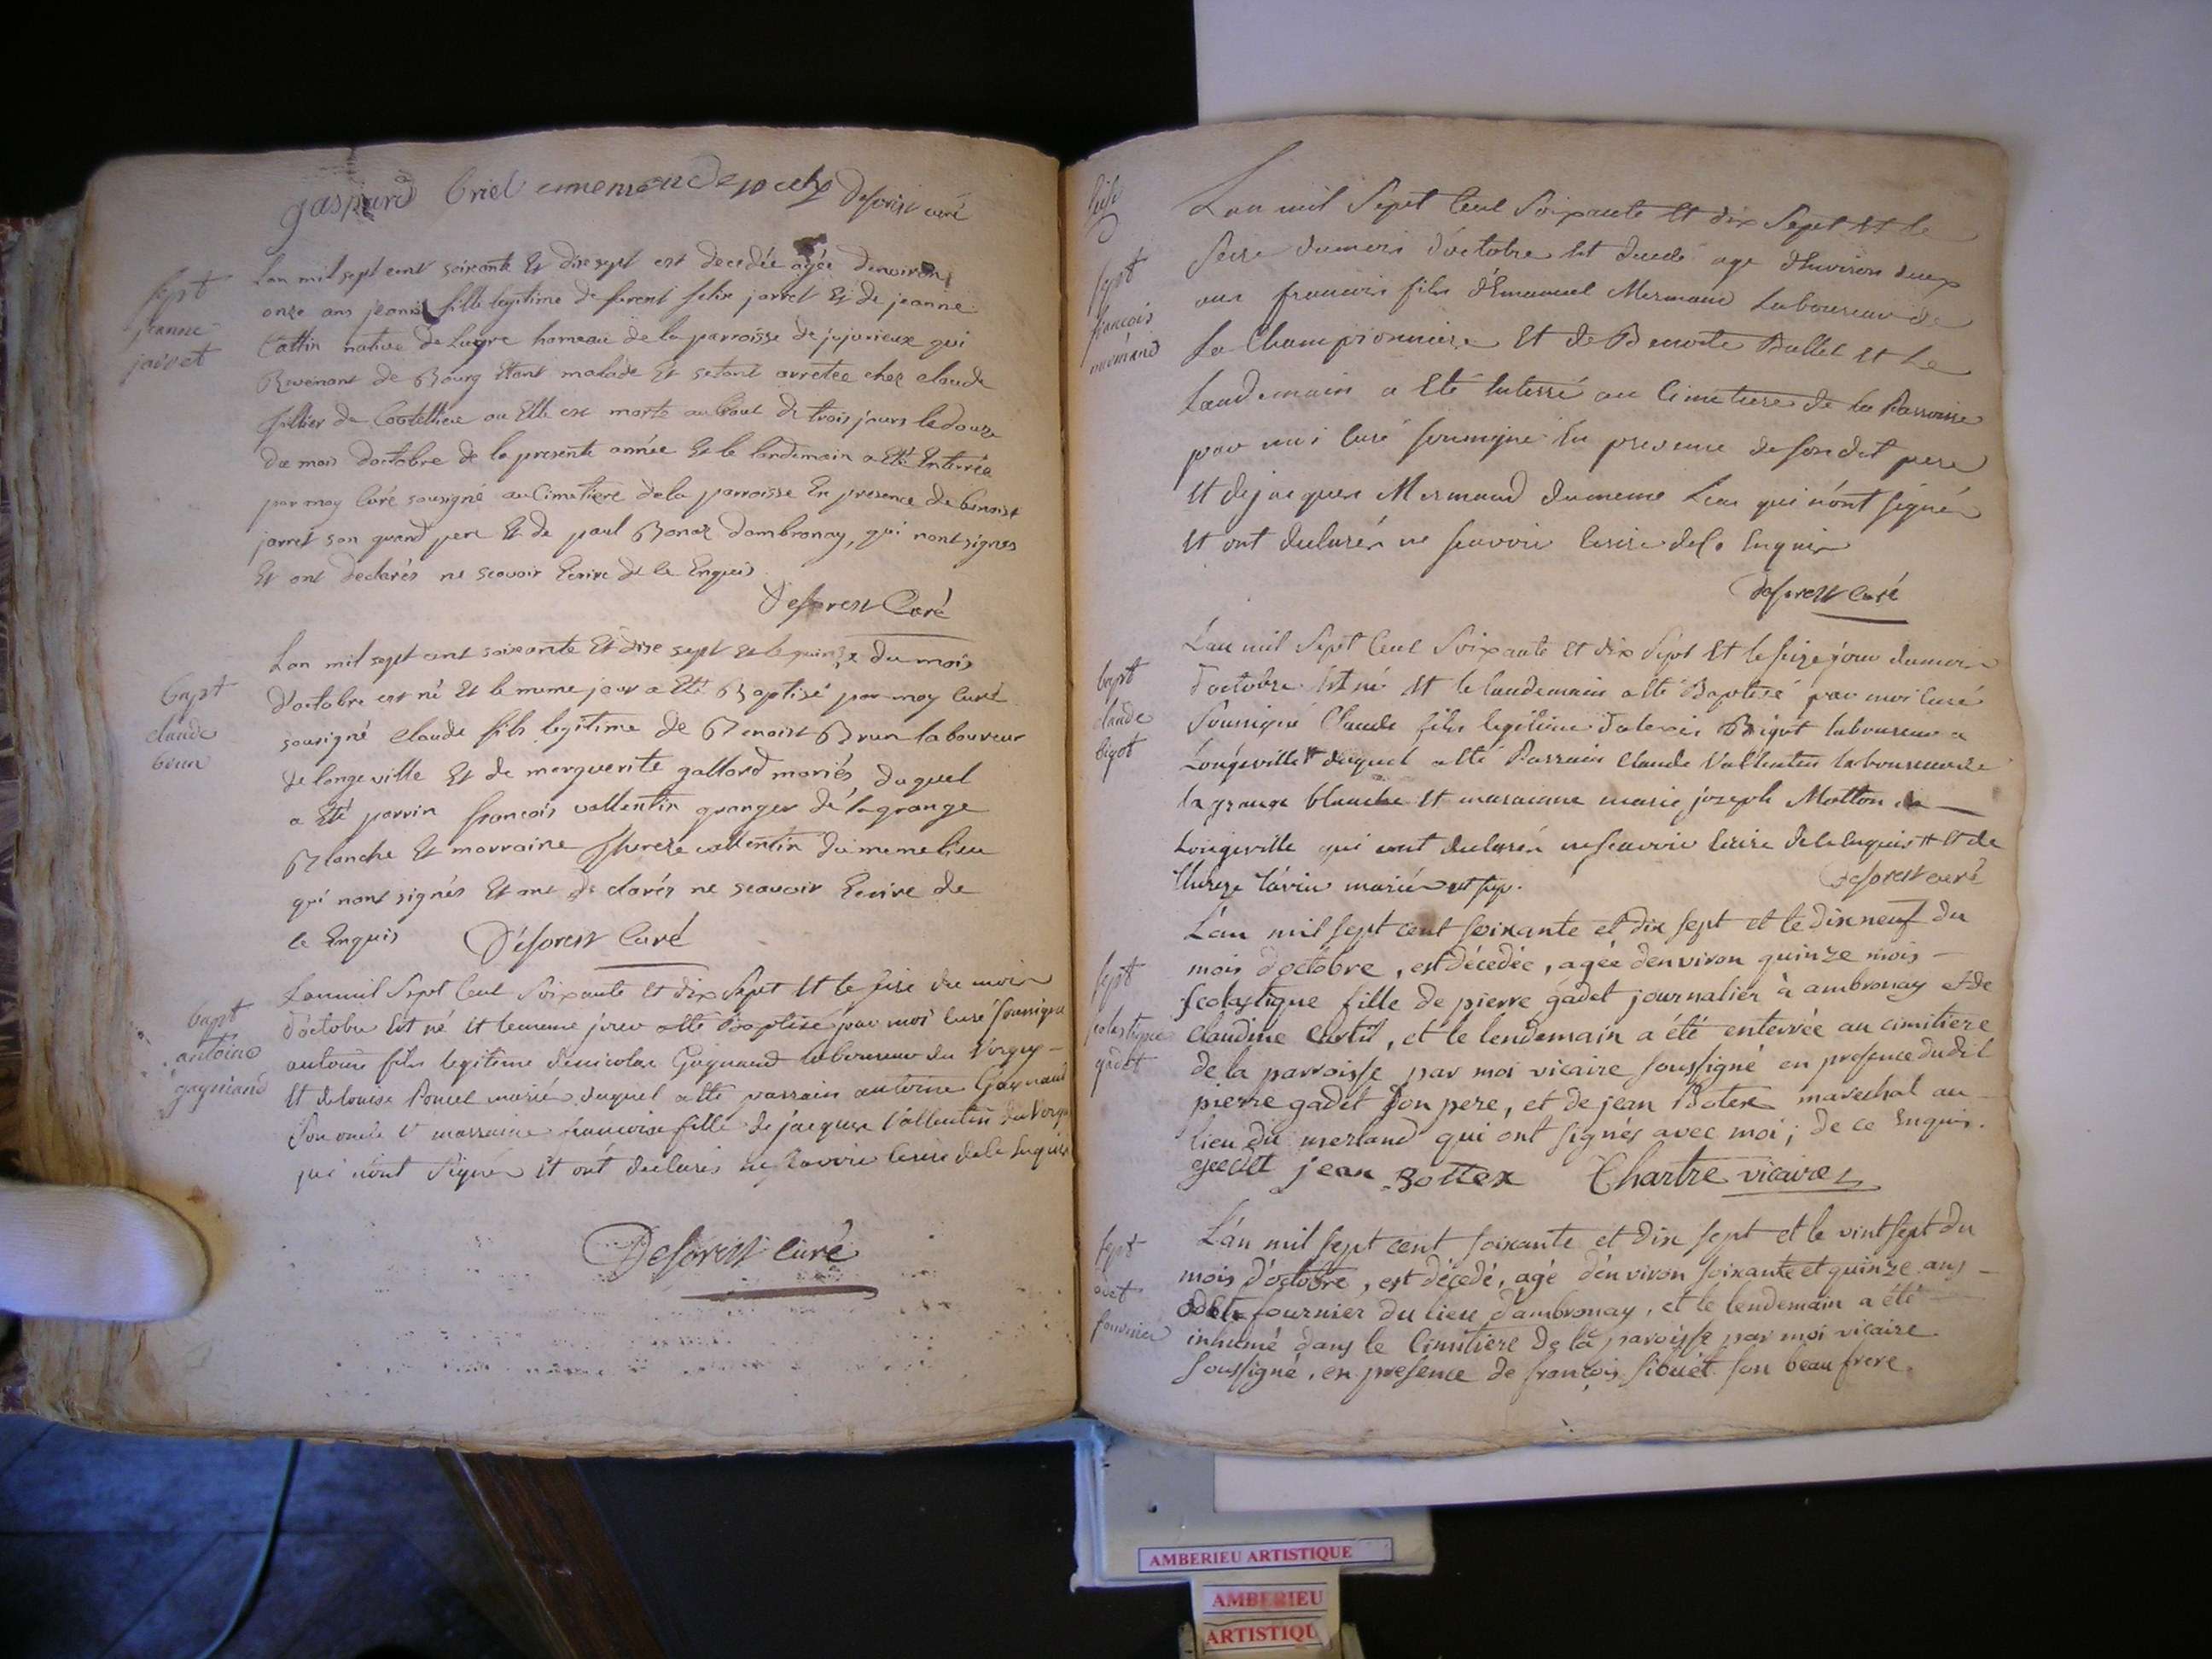 gaspard briel Desforest curé
sept
jeanne
jarret
Lan mil sept cent soixante Et dixsept est decedée agée denviron
onze ans jeanne fille legitime de forent felix jarret Et de jeanne
Cattin native de hameau de la parroisse de jujurieux qui
Revenant de Bourg Etant malade Et setant arretée chez claude
de ou Elle est morte au bout de trois jours le douze
du mois doctobre de la presente année Et le landemain a Eté Enterrée
par moy Curé sousigné au Cimetiere de la parroisse En presence de benoist
jarret son grand pere Et de paul Bonaz dambronay, qui nont signés
Et ont declarés ne scavoir Ecrire de ce Enquis
Desforest Curé
bapt
claude
brun
Lan mil sept cent soixante Et dixe sept Et le quinze du mois
d'octobre est né Et le meme jour a Eté Baptisé par moy Curé
sousigné claude fils legitime de Benoist Brun laboureur
de longeville Et de marguerite galland mariés, duquel
a Eté parrin françois vallentin granger de la grange
Blanche Et marraine therese vallentin du meme lieu
qui nont signés Et ont declarés ne scavoir Ecrire de
ce Enquis Desforest Curé
bapt
antoine
gagniand
Lan mil Sept Cent Soixante Et dix Sept Et le seise du mois
d'octobre Est né Et le meme jour a été Baptisé par moi Curé soussigné
antoine fils legitime de nicolas Gagnand laboureur du Vorgey
Et de louise Poncet mariés duquel a été parrain antoine Gagnand
Son oncle et marraine francoise fille de jacques Vallentin du
qui n'ont Signés Et ont declarés ne scavoir Ecrire de ce Enquis
Desforest Curé
sept
francois
mermand
Lan mil Sept Cent Soixante Et dix Sept Et le
Seise du mois d'octobre Est decedé age d'Environ deux
ans francois fils d'Emanuel Mermand Laboureur de
La Championniere Et de Benoite Ballet Et Le
Landemain a Eté Enterré au Cimetiere de la Parroisse
par moi Curé soussigné En presence de son dit pere
Et de jacques Mermand du meme Lieu qui n'ont signés
Et ont declarés ne scavoir Ecrire de ce Enquis
Desforest Curé
bapt
claude
bigot
L'an mil Sept Cent Soixante Et dix Sept Et le seize jour du mois
d'octobre Est né Et le landemain a été Baptisé par moi Curé
Soussigné Claude fils legitime d'alexis Bigot laboureur a
Longeville # duquel a été Parrain Claude Vallentin laboureur de
la grange blanche Et maraine marie joseph Motton de
Longeville qui ont declarés ne scavoir Ecrire de ce Enquis # Et de
therese mariés
Desforest curé
sept
scolastique
gadet
L'an mil sept cent soixante et dix sept et le dix neuf du
mois d'octobre, est décedée, agée denviron quinze mois
scolastique fille de pierre gadet journalier à ambronay et de
claudine Curtil, et le lendemain a été enterrée au cimitiere
de la parroisse par moi vicaire soussigné en presence du dit
pierre gadet son pere, et de jean Botex marechal au
lieu du merland qui ont signés avec moi; de ce Enquis.
gadet jean Bottex Chartre vicaire
sept
odet
fournier
L'an mil sept cent soixante et dix sept et le vint sept du
mois d'octobre, est décedé, agé d'environ soixante et quinze ans
odet fournier du lieu d'ambronay, et le lendemain a été
inhumé dans le Cimitiere de la paroisse par moi vicaire
soussigné, en presence de françois sibuet son beau frere.
AMBERIEU ARTISTIQUE
AMBERIEU
ARTISTIQU